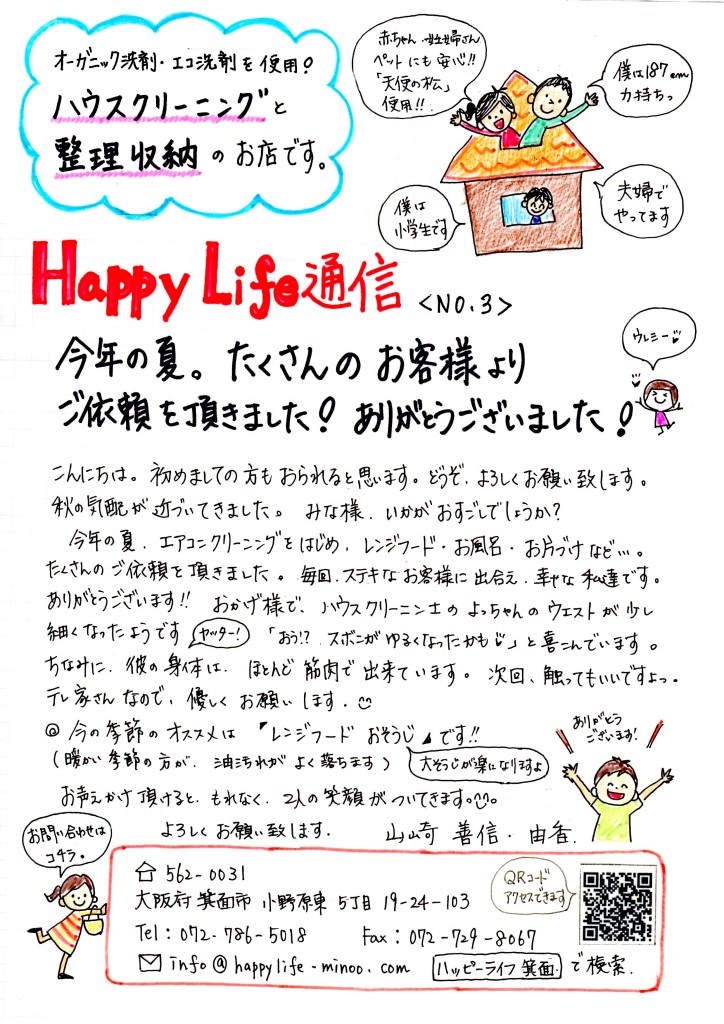 オーガニック洗剤・エコ洗剤を使用!
ハウスクリーニングと
整理収納のお店です。
赤ちゃん・妊婦さん
ペットにも安心!!
「天使の松」
使用!!
僕は187cm
力持ちっ
僕は
小学生です
夫婦で
やってます
Happy Life通信 <NO.3>
今年の夏。たくさんのお客様より
ご依頼を頂きました!ありがとうございました!
ウレシー
こんにちは。初めましての方もおられると思います。どうぞ、よろしくお願い致します。
秋の気配が近づいてきました。みな様、いかがおすごしでしょうか?
今年の夏、エアコンクリーニングをはじめ、レンジフード・お風呂・お片づけなど…。
たくさんのご依頼を頂きました。毎回、ステキなお客様に出会え、幸せな私達です。
ありがとうございます!! おかげ様で、ハウスクリーニン士のよっちゃんのウエストが少し
細くなったようです ヤッター! 「おぅ!? ズボンがゆるくなったかも♡」と喜こんでいます。
ちなみに、彼の身体は、ほとんど筋肉で出来ています。次回、触ってもいいですよっ。
テレ家さんなので、優しくお願いします。
◎今の季節のオススメは『レンジフードおそうじ』です!!
(暖かい季節の方が、油汚れがよく落ちます) 大そうじが楽になりますよ
ありがとう
ございます!
お声えかけ頂けると、もれなく、2人の笑顔がついてきます。
よろしくお願い致します。 山崎 善信・由香
お問い合わせは
コチラ。
562-0031
大阪府箕面市小野原東5丁目19-24-103
Tel: 072-786-5018 Fax: 072-729-8067
info@happylife-minoo.com ハッピーライフ 箕面 で検索。
QRコード
アクセスできます